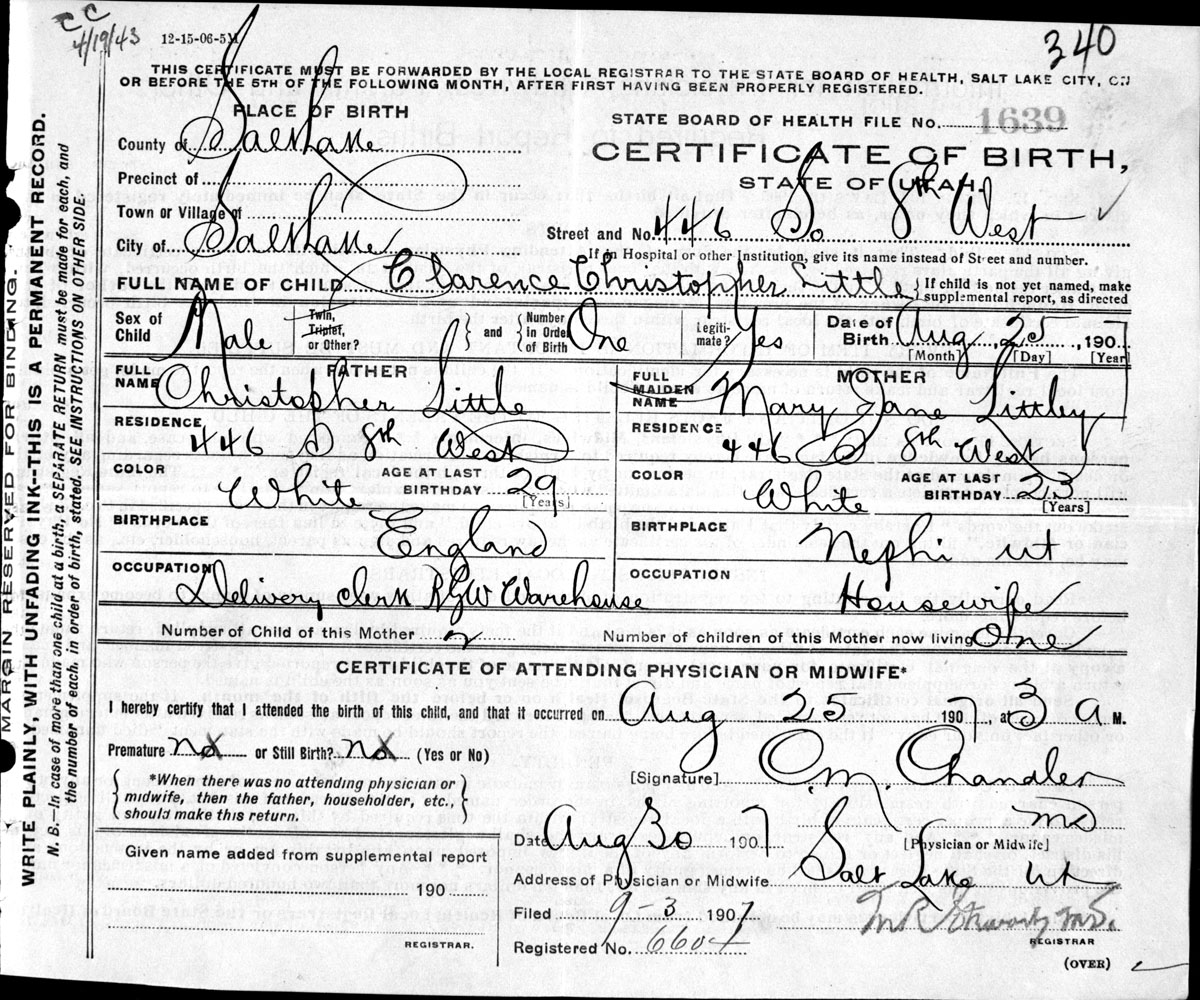 CC
4/19/43
12-15-06-5M
340
THIS CERTIFICATE MUST BE FORWARDED BY THE LOCAL REGISTRAR TO THE STATE BOARD OF HEALTH, SALT LAKE CITY, ON
OR BEFORE THE 5TH OF THE FOLLOWING MONTH, AFTER FIRST HAVING BEEN PROPERLY REGISTERED.
MARGIN RESERVED FOR BINDING.
WRITE PLAINLY, WITH UNFADING INK--THIS IS A PERMANENT RECORD.
N. B.—In case of more than one child at a birth, a SEPARATE RETURN must be made for each, and
the number of each, in order of birth, stated. SEE INSTRUCTIONS ON OTHER SIDE.
PLACE OF BIRTH
County of Salt Lake
Precinct of
Town or Village of
City of Salt Lake
STATE BOARD OF HEALTH FILE No. 1639
CERTIFICATE OF BIRTH,
STATE OF UTAH.
Street and No. 446 So 8th West
If in Hospital or other Institution, give its name instead of Street and number.
FULL NAME OF CHILD Clarence Christopher Little
If child is not yet named, make
supplemental report, as directed
Sex of Child Male
Twin, Triplet, or Other?
and
Number in Order of Birth One
Legiti-mate? Yes
Date of Birth Aug 25, 190
[Month] [Day] [Year]
FATHER
FULL NAME Christopher Little
RESIDENCE 446 S 8th West
COLOR White
AGE AT LAST BIRTHDAY 29
[Years]
BIRTHPLACE England
OCCUPATION Delivery Clerk RGW Warehouse
MOTHER
FULL MAIDEN NAME Mary Jane Littley
RESIDENCE 446 S 8th West
COLOR White
AGE AT LAST BIRTHDAY 23
[Years]
BIRTHPLACE Nephi ut
OCCUPATION Housewife
Number of Child of this Mother 2
Number of children of this Mother now living One
CERTIFICATE OF ATTENDING PHYSICIAN OR MIDWIFE*
I hereby certify that I attended the birth of this child, and that it occurred on Aug 25 1907, at 3 a M.
Premature no or Still Birth? no (Yes or No)
[Signature] O M Chandler
MD
[Physician or Midwife]
*When there was no attending physician or
midwife, then the father, householder, etc.,
should make this return.
Date Aug 30 1907
Given name added from supplemental report
190
REGISTRAR.
Address of Physician or Midwife Salt Lake ut
Filed 9-3 1907
Registered No. 6604
REGISTRAR
(OVER)